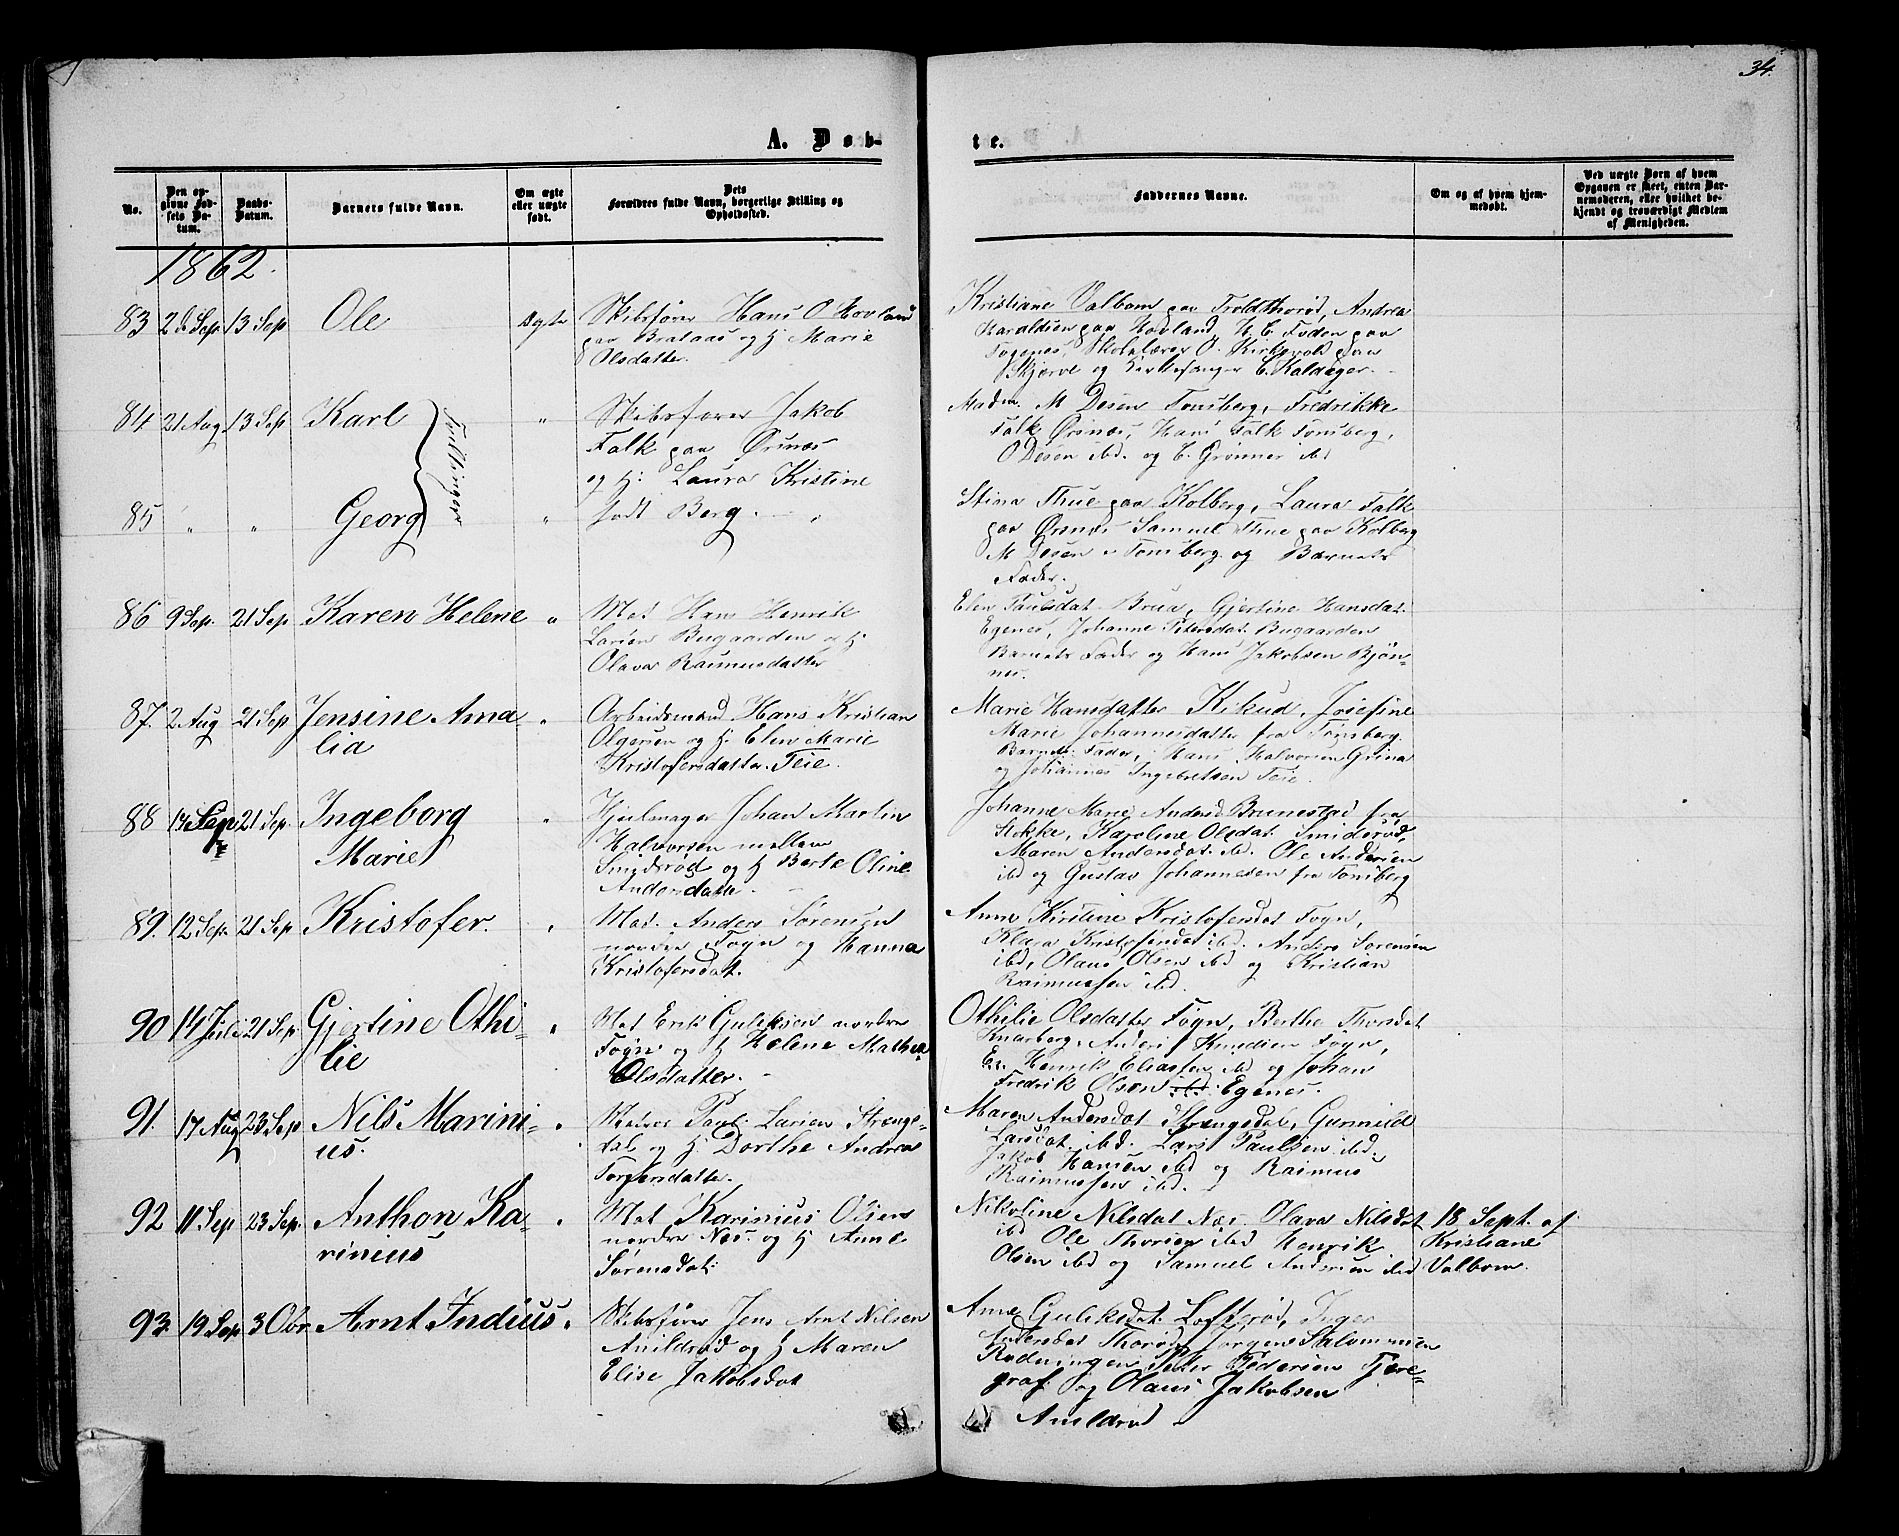 34.
A. Døb-
te.
No.
Den op-
givne Fød-
sels Da-
tum.
Daabs-
Datum.
Barnets fulde Navn.
Om ægte
eller uægte
født.
Dets
Forældres fulde Navn, borgerlige Stilling og
Opholdssted.
Faddernes Navne.
Om og af hvem hjem-
medøbt.
Ved uægte Børn af hvem
Opgaven er skeet, enten Bar-
nemoderen, eller hvilket be-
kjendt og troværdigt Medlem
af Menigheden.
1862.
83 Sep 13 Sep Ole ægte
Skibsfører Hans O Hovland
paa Brataas og H Marie
Olsdatter.
Kristiane Valbom paa Troldthorød, Andrea
Haraldsen paa Hovland, H. C. Foden paa
Fogenes, Skolelærer O. Kirkevold paa
Skjerve og Kirkesanger C. Kaldager.
84 21 Aug 13 Sep Karl "
Tvillinger
Skibsfører Jakob
Falk paa Ørsnæs
og H: Laura Kristine
Madm. M Desen Tønsberg, Fredrikke
Falk Ørsnæs, Hans Falk Tønsberg,
O Desen ibd. og C. Grønner ibd
85 " " Georg "
født Berg.
Stina Thue paa Kolberg, Laura Falk
paa Ørsnæs Samuel Thue paa Kolberg
M Desen Tønsberg og Barnets
Fader.
86 9 Sep. 21 Sep Karen Helene "
Mat Hans Henrik
Larsen Bugaarden og H
Olava Rasmusdatter
Elen Paulsdat Brua, Gjertine Hansdat.
Egenes, Johanne Petersdat Bugaarden
Barnets Fader og Hans Jakobsen Bjøn-
nes.
87. 2 Aug 21 Sep Jensine Ama-
lia "
Arbeidsmand Hans Kristian
Olgersen og H. Elen Marie
Kristofersdatter. Teie.
Marie Hansdatter Kikud, Josefine
Marie Johannesdatter fra Tønsberg.
Barnets Fader, Hans Halvorsen Grina
og Johannes Ingebretsen Teie.
88 14 Sep 21 Sep. Ingeborg
Marie "
Hjulmager Johan Martin
Halvorsen mellem
Smidsrød og H Berte Oline
Andersdatter.
Johanne Marie Andersd Brunestad fra
Stokke, Karoline Olsdat. Smidsrød,
Maren Andersdat. ibd. Ole Andersen
ibd og Gustav Johannesen fra Tønsberg
89. 12 Sep. 21 Sep Kristofer. "
Mat. Anders Sørensen
nordre Fogn og Hanna
Kristofersdat.
Anne Kirstine Kristofersdat Fogn,
Klara Kristofersdat ibd. Anders Sørensen
ibd, Olaus Olsen ibd og Kristian
Rasmussen ibd.
90 14 Juli 21 Sep Gjertine Othi-
lie "
Mat Erik Guliksen nordre
Fogn og H Helene Mathea
Olsdatter.
Othilie Olsdatter Fogn, Berthe Thorsdat
Knarberg, Anders Knudsen Fogn,
Henrik Eliassen ibd og Johan
Fredrik Olsen ibd. Egenes.
91. 17 Aug 23 Sep Nils Marini-
us. "
Matros Paul Larsen Strengs-
dal og H. Dorthe Andrea
Torgersdatter.
Maren Andersdat Strengsdal, Gunnild
Larsdat. ibd. Lars Paulsen ibd.
Jakob Hansen ibd og Rasmus
Rasmussen ibd.
92 11 Sep 23 Sep. Anthon Ka-
rinius "
Mat Karinius Olsen
nordre Næs. og H Anne
Sørensdat.
Nikoline Nilsdat Næs Olava Nilsdat
ibd Ole Thorsen ibd Henrik
Olsen ibd og Samuel Andersen ibd
18 Sept. af
Kristiane
Valbom.
93. 19 Sep 3 Obr. Arnt Indius "
Skibsfører Jens Arnt Nilsen
Anildrød og H Maren
Elise Jakobsdat
Anne Guliksdat. Lofterød, Inger
Andersdat Thorød Jørgen Salommen
Rødningen Peter Pedersen Tjøre-
graf og Olaus Jakobsen
Anildrød